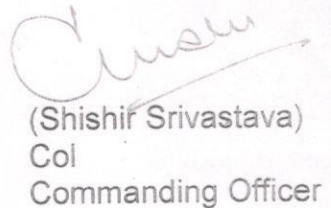 (Shishir Srivastava)
Col
Commanding Officer